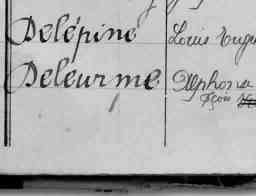 Delépine Louis Eug
Deleurme Alphonse
Fçois